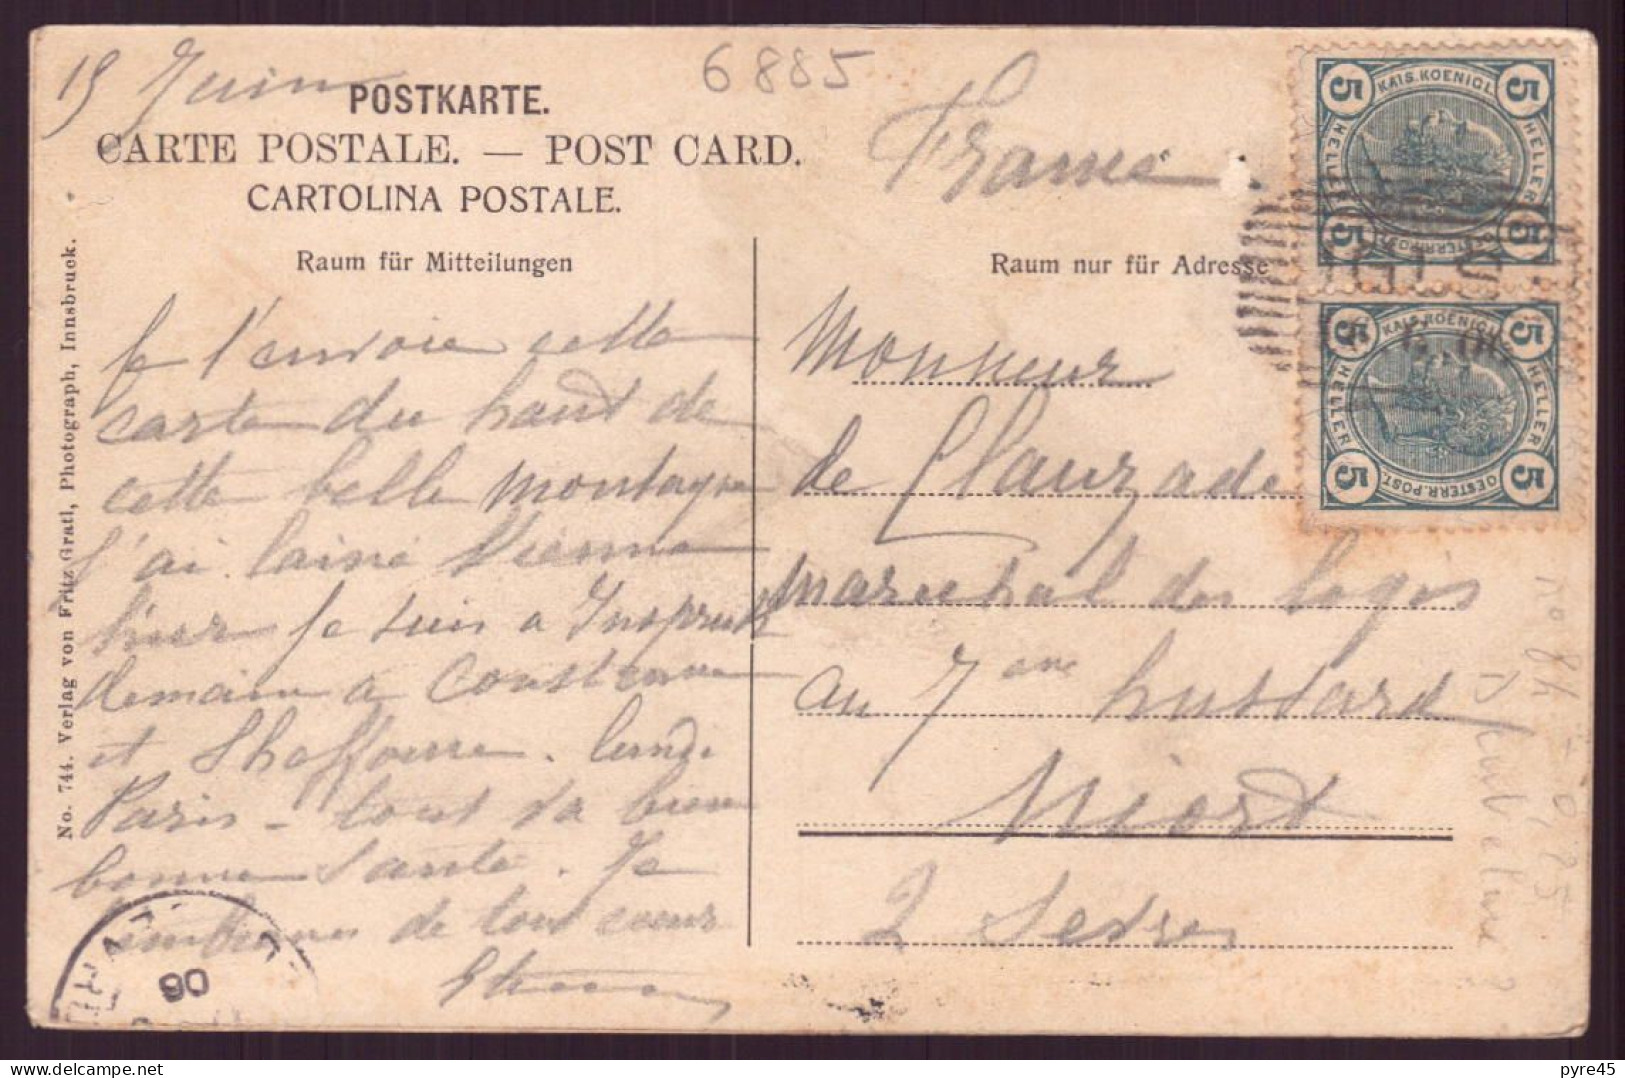 15 Juin
6885
POSTKARTE.
CARTE POSTALE. — POST CARD.
CARTOLINA POSTALE.
Raum für Mitteilungen
Je t'envoie cette
carte du haut de
cette belle montagne
J'ai laissé Vienne
hier je suis a Inspruck
demain a Constance
et Shaffouse. lundi
Paris - tout va bien
bonne santé. Je
t'embrasse de tout coeur
No. 744. Verlag von Fritz Gratl, Photograph, Innsbruck.
France
Raum nur für Adresse
Monsieur
de Clauzade
marechal des logis
au 7eme hussard
Niort
2 Sevres
5 KAIS. KOENIGL. 5
HELLER HELLER
5 OESTERR. POST 5
5 KAIS. KOENIGL. 5
HELLER HELLER
5 OESTERR. POST. 5
06
pyre45